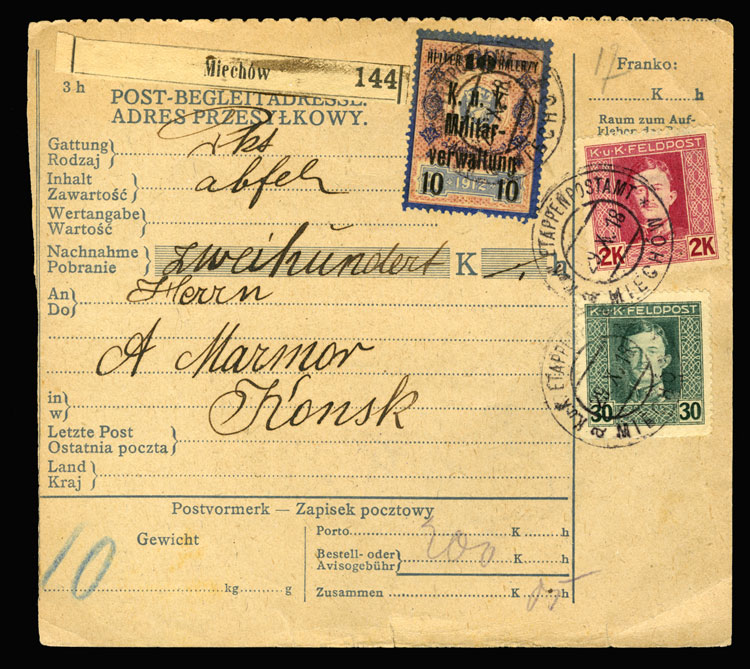 Miechów 144
3 h
POST-BEGLEITADRESSE.
ADRES PRZESYŁKOWY.
Gattung
Rodzaj
Inhalt
Zawartość
Wertangabe
Wartość
Nachnahme
Pobranie
zweihundert K h
An
Do
Herrn
A Marmor
Konsk
in
w
Letzte Post
Ostatnia poczta
Land
Kraj
Postvormerk — Zapisek pocztowy
Gewicht
10
kg g
Porto K h
Bestell- oder
Avisogebühr
K h
200
Zusammen K h
HELLER HALERZY
K. u. K.
Militär-
verwaltung
10 1912 10
Franko:
K h
Raum zum Auf-
K.u.K. FELDPOST
2K 2K
K.u.K. FELDPOST
30 30
K.u.K. ETAPPENPOSTAMT * MIECHÓW
K.u.K. ETAPPEN